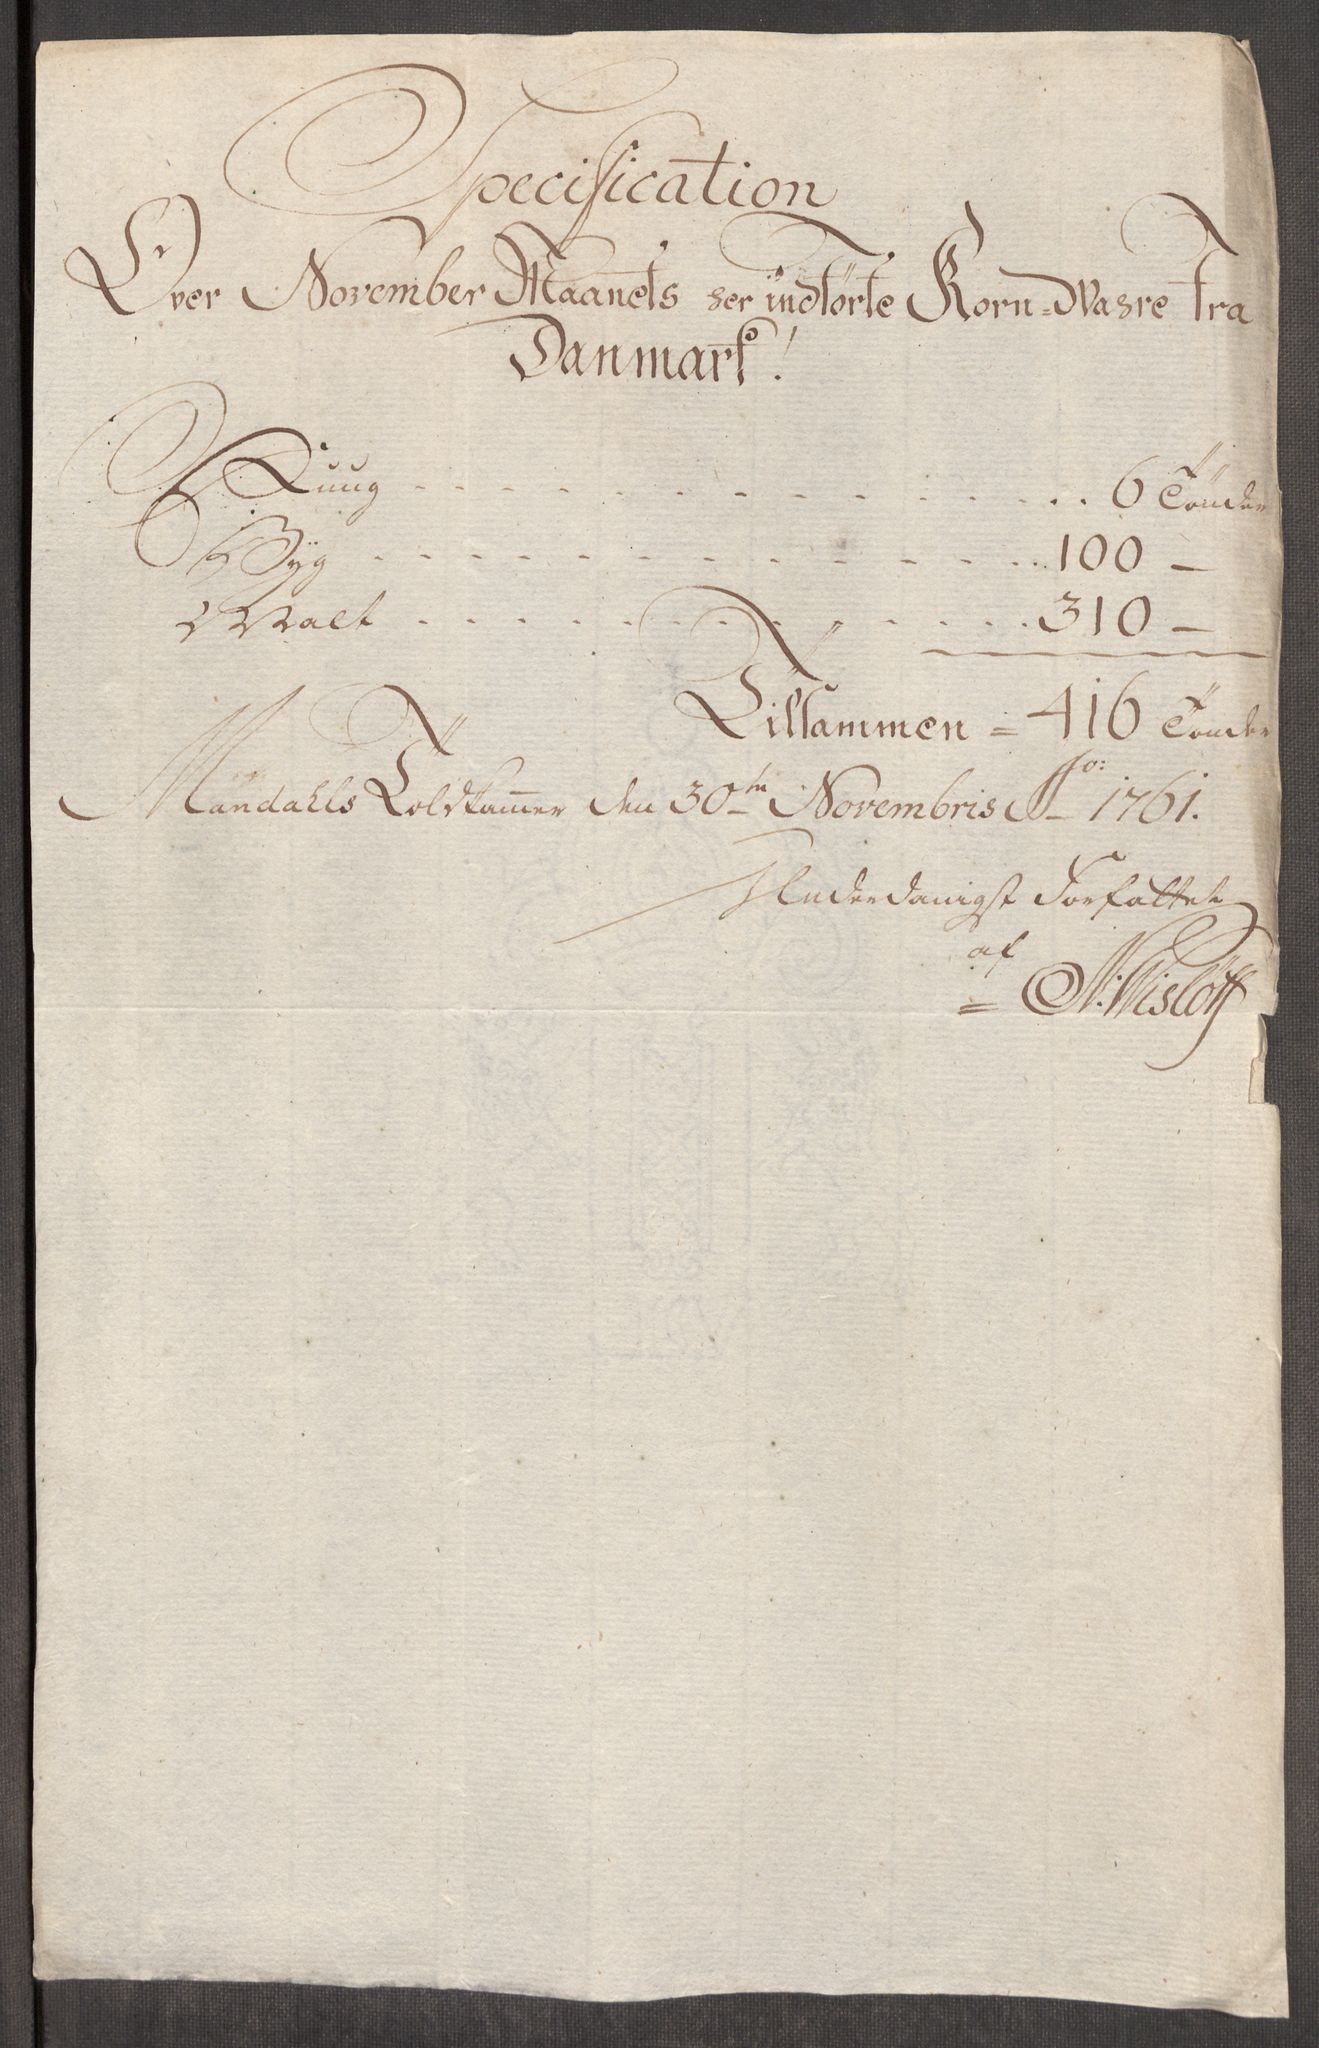 Specification
Over November Maanets her indförte Korn=Wahre fra
Danmark!
Ruug . . . . . . . . . . . . . 6 Tönder
Byg . . . . . . . . . . . . . 100 —
Malt . . . . . . . . . . . . . 310 —
Tilsammen = 416 Tönder
Mandahls Toldkamer den 30te Novembris Ao: 1761.
Underdanigst Forfattet
af
= N: Wislöff